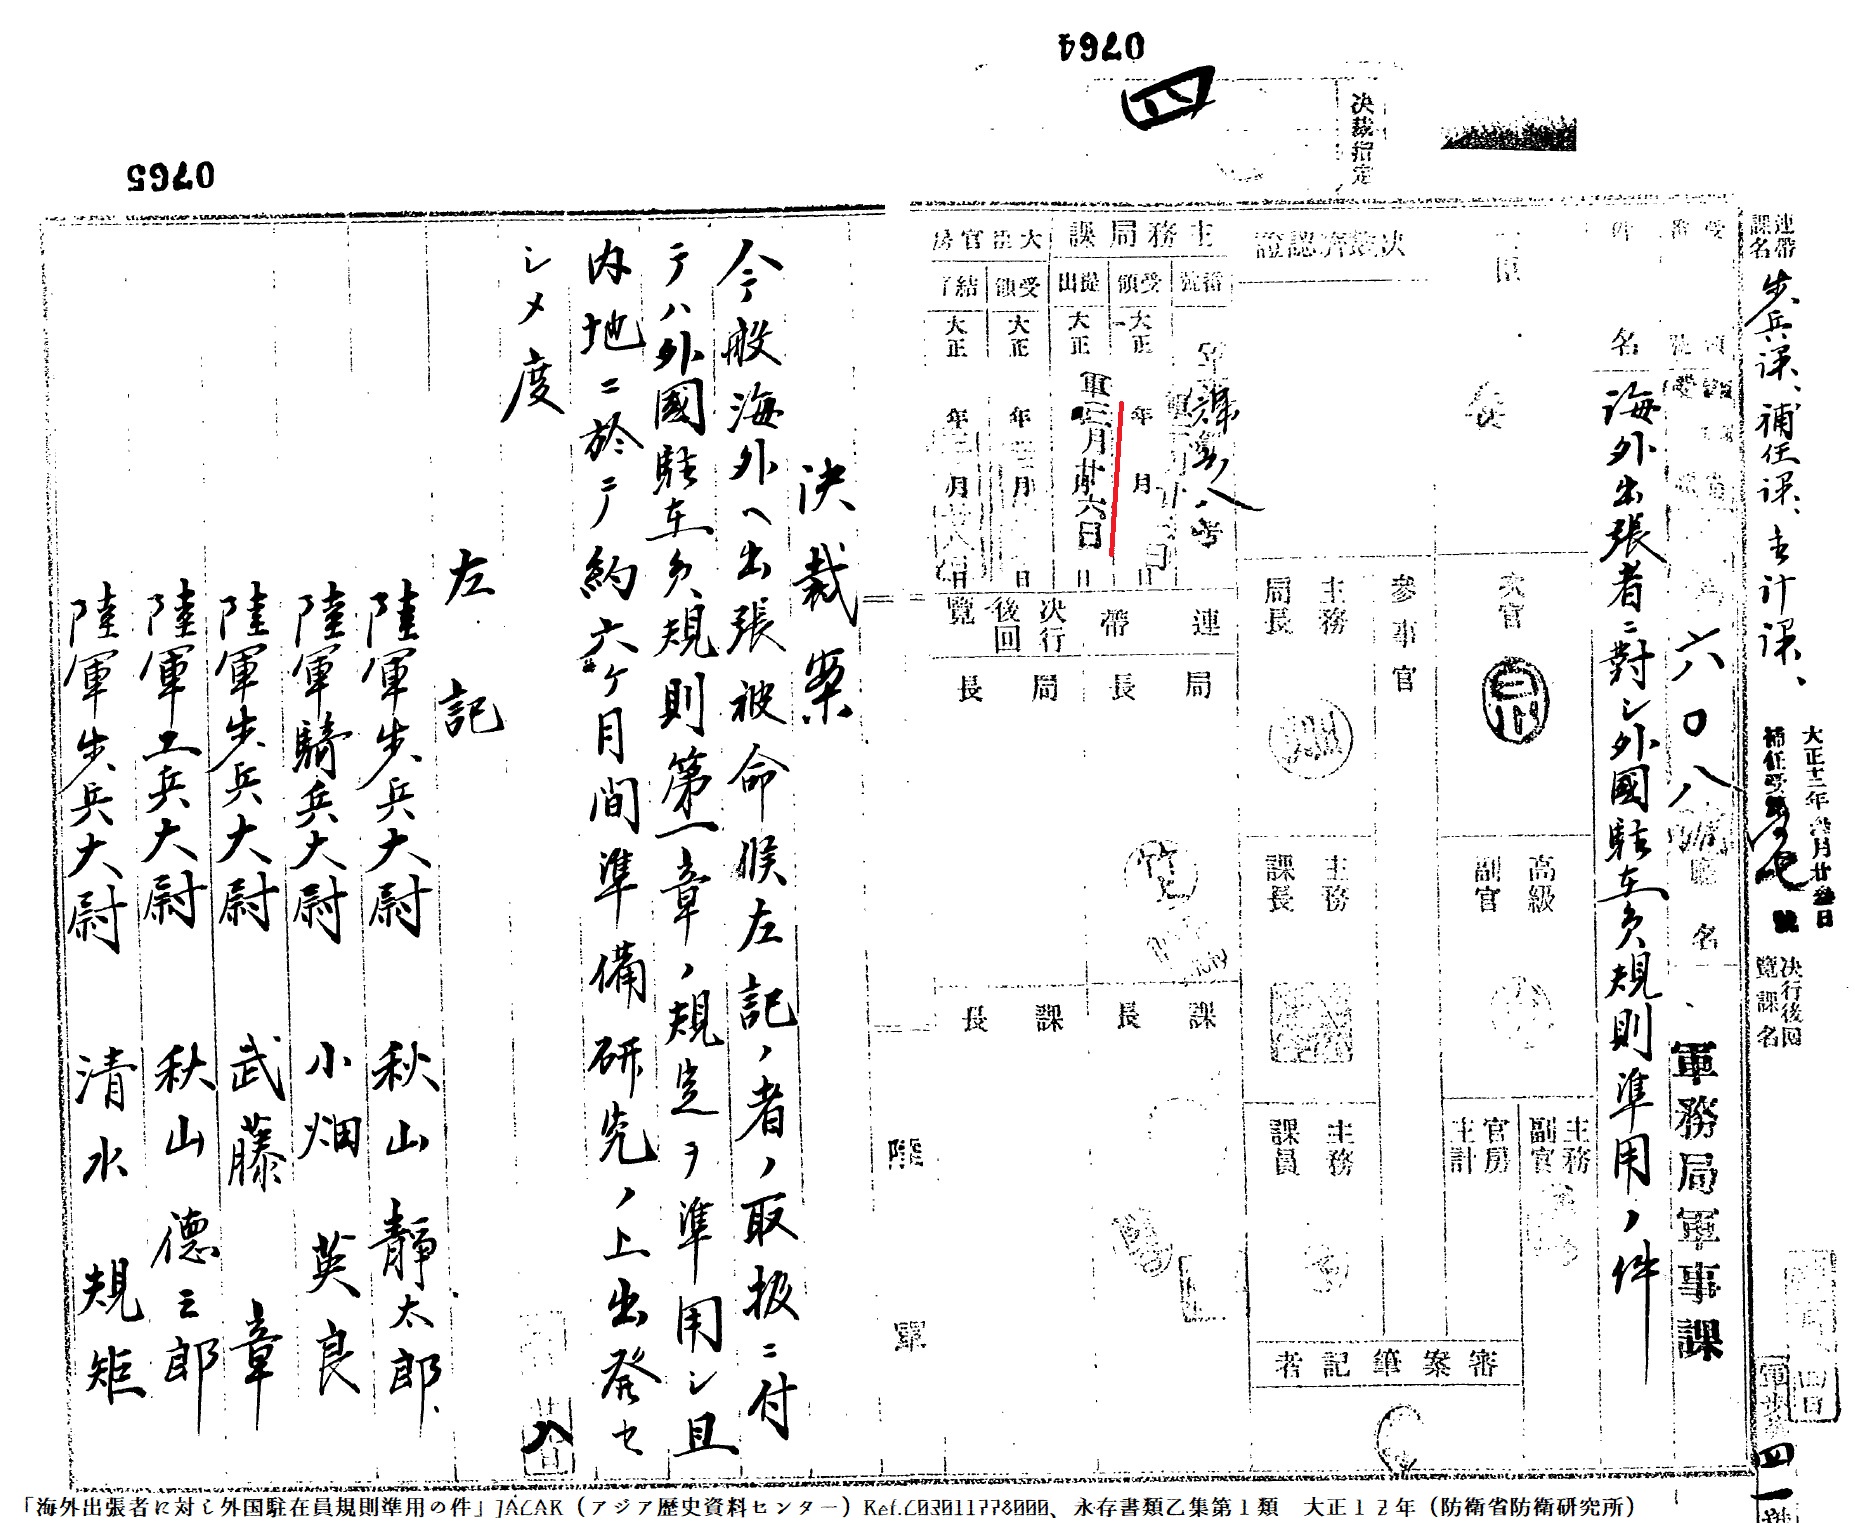 0764
四
決裁指定
連帶課名
歩兵課、補任課、主計課、
大正十二年 月廿 日
補任受第 號
決行後回覽課名
受領番號
六〇八
廳名
軍務局軍事課
件名
海外出張者ニ對シ外國駐在員規則準用ノ件
大臣
次官
高級副官
主務副官
官房主計
參事官
決裁濟認證
主務局長
主務課長
主務課員
審案筆記者
主務局課
番號
受領
大正 年 月 日
提出
大正
軍三月廿六日
大臣官房
受領
大正 年 月 日
結了
大正 年 月 日
連帶
局長
課長
決行後回覽
局長
課長
陸軍
0765
決裁案
今般海外ヘ出張被命候左記ノ者ノ取扱ニ付
テハ外國駐在員規則第一章ノ規定ヲ準用シ且
内地ニ於テ約六ケ月間準備研究ノ上出發セ
シメ度
左記
陸軍歩兵大尉 秋山靜太郎
陸軍騎兵大尉 小畑英良
陸軍歩兵大尉 武藤章
陸軍工兵大尉 秋山德三郎
陸軍歩兵大尉 清水規矩
「海外出張者に対し外国駐在員規則準用の件」JACAR（アジア歴史資料センター）Ref.C03011778000、永存書類乙集第１類　大正１２年（防衛省防衛研究所）